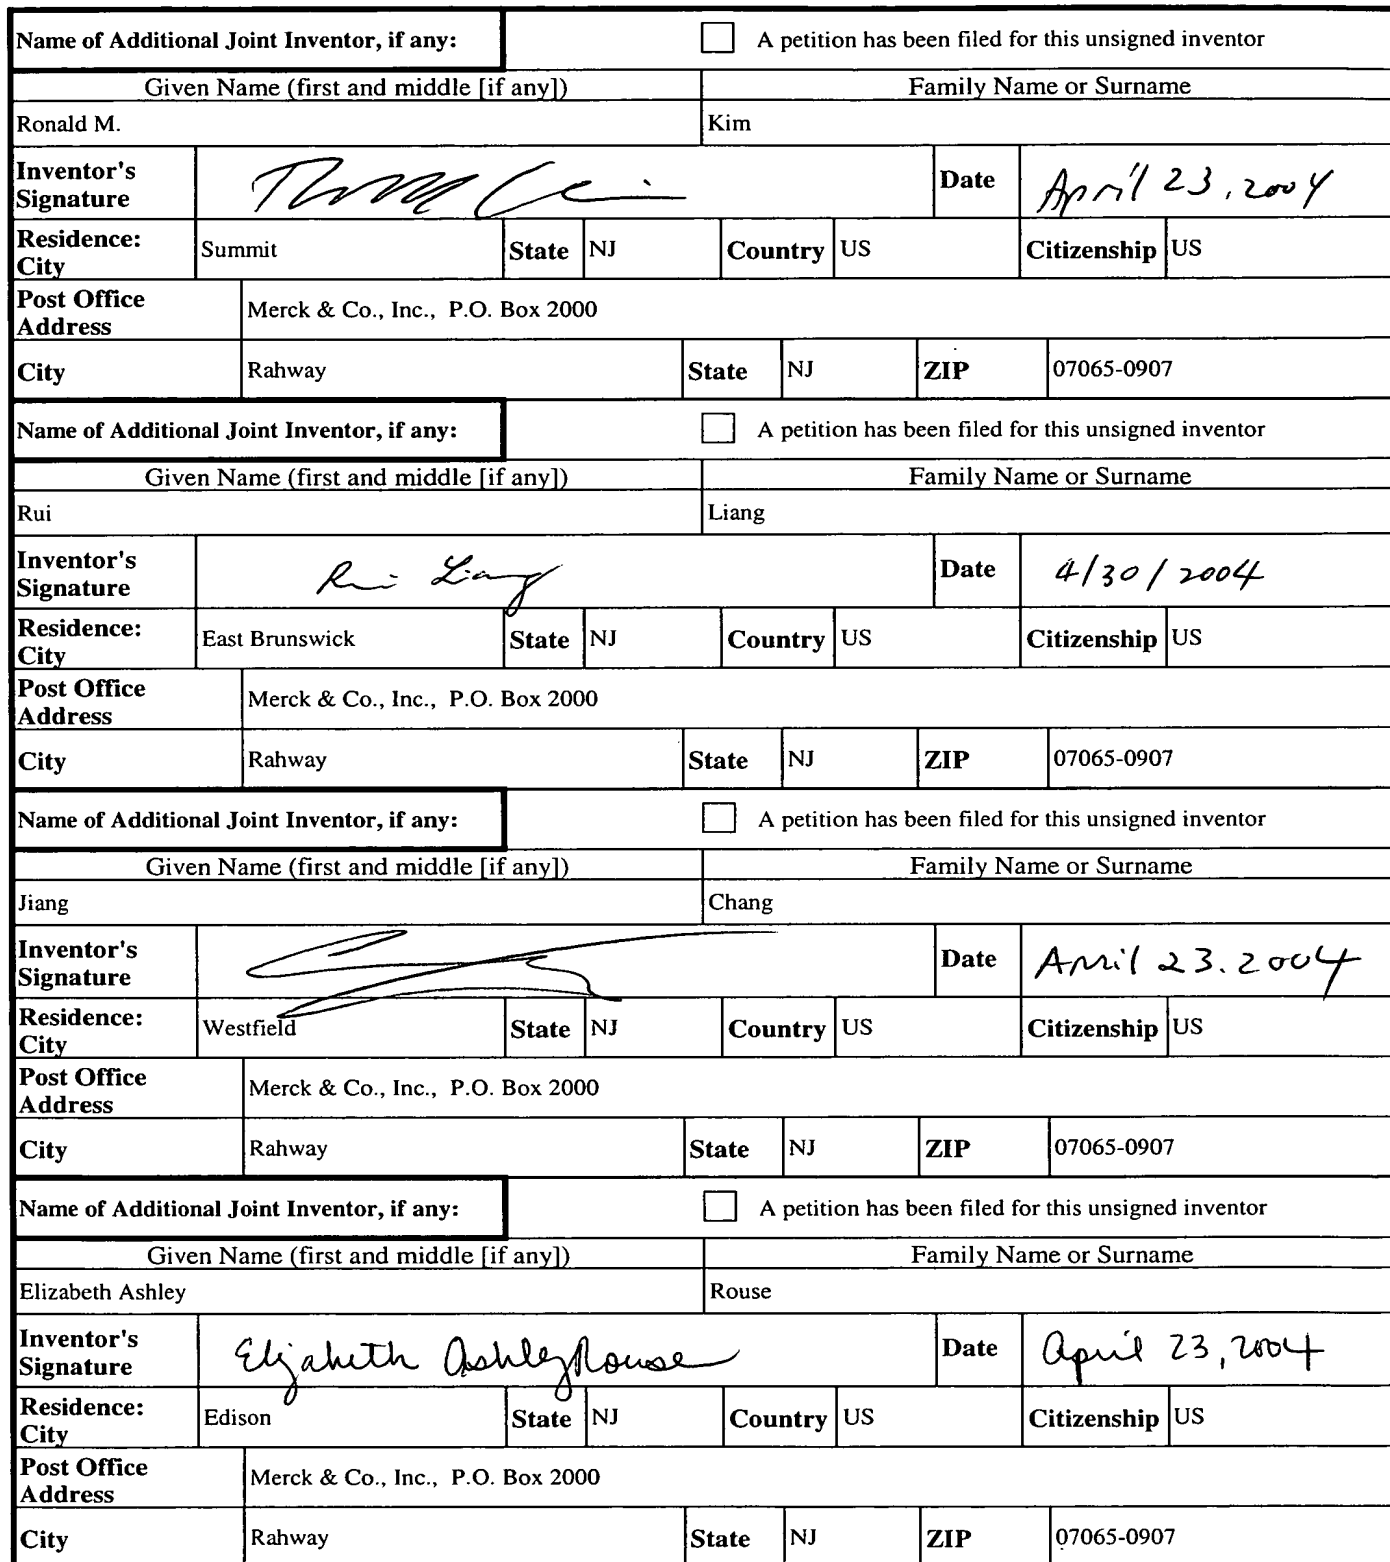 Name of Additional Joint Inventor, if any: A petition has been filed for this unsigned inventor
Given Name (first and middle [if any]) Family Name or Surname
Ronald M. Kim
Inventor's Signature Date April 23, 2004
Residence: City Summit State NJ Country US Citizenship US
Post Office Address Merck & Co., Inc., P.O. Box 2000
City Rahway State NJ ZIP 07065-0907
Name of Additional Joint Inventor, if any: A petition has been filed for this unsigned inventor
Given Name (first and middle [if any]) Family Name or Surname
Rui Liang
Inventor's Signature Rui Liang Date 4/30/2004
Residence: City East Brunswick State NJ Country US Citizenship US
Post Office Address Merck & Co., Inc., P.O. Box 2000
City Rahway State NJ ZIP 07065-0907
Name of Additional Joint Inventor, if any: A petition has been filed for this unsigned inventor
Given Name (first and middle [if any]) Family Name or Surname
Jiang Chang
Inventor's Signature Date April 23. 2004
Residence: City Westfield State NJ Country US Citizenship US
Post Office Address Merck & Co., Inc., P.O. Box 2000
City Rahway State NJ ZIP 07065-0907
Name of Additional Joint Inventor, if any: A petition has been filed for this unsigned inventor
Given Name (first and middle [if any]) Family Name or Surname
Elizabeth Ashley Rouse
Inventor's Signature Elizabeth Ashley Rouse Date April 23, 2004
Residence: City Edison State NJ Country US Citizenship US
Post Office Address Merck & Co., Inc., P.O. Box 2000
City Rahway State NJ ZIP 07065-0907